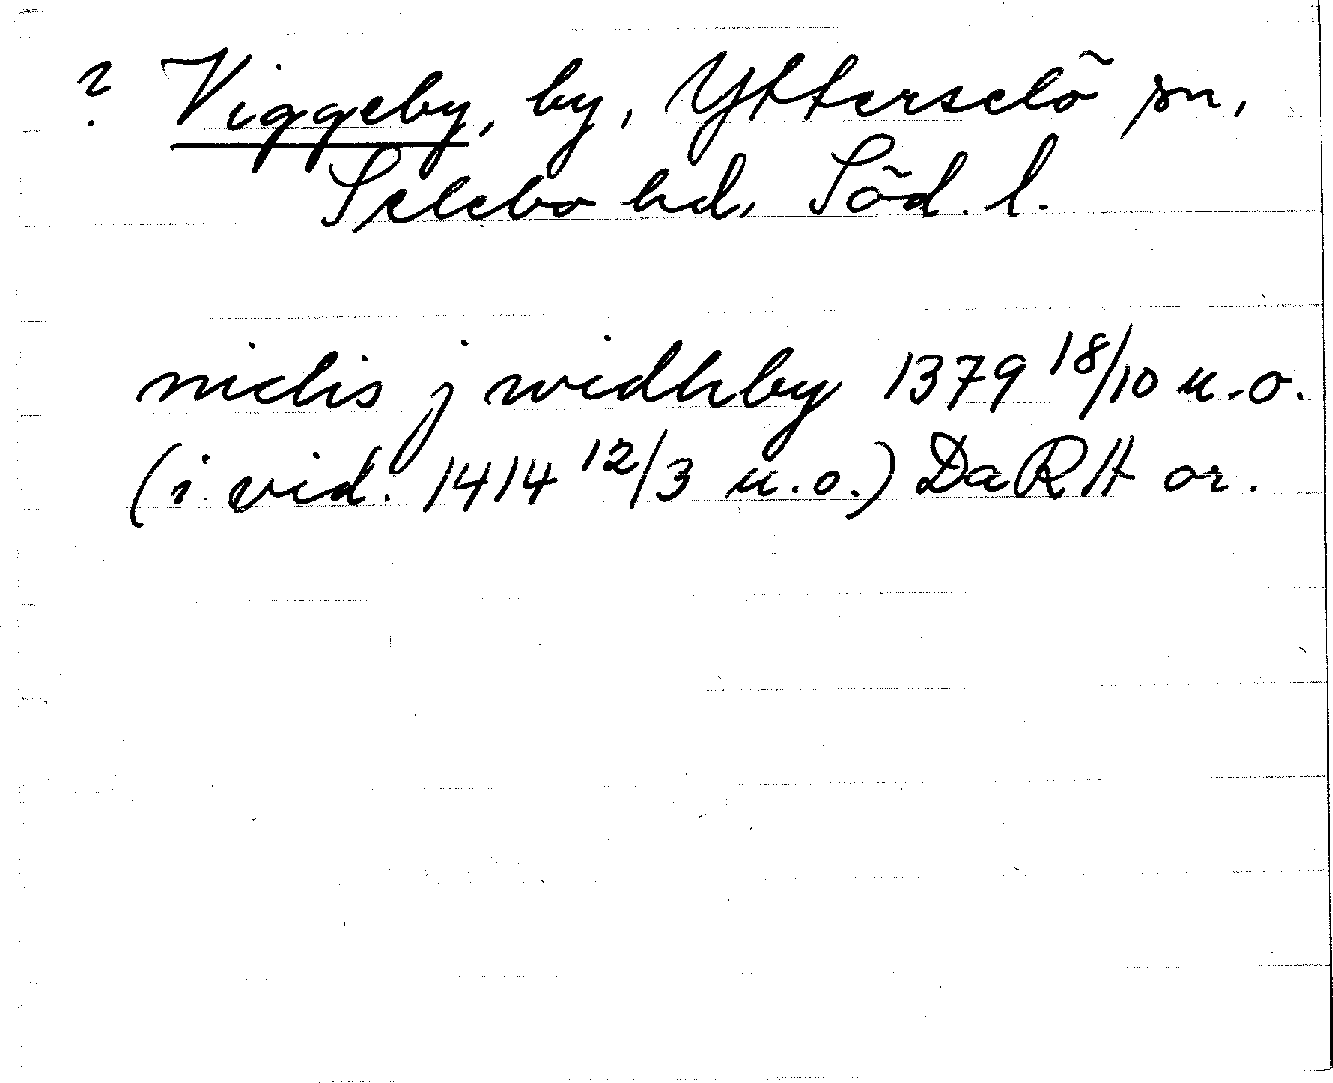 ? Viggeby, by, Ytterselö sn,
Selebo hd, Söd. l.
niclis j widhby 1379 18/10 u.o.
(i vid. 1414 12/3 u.o.) DaRA or.